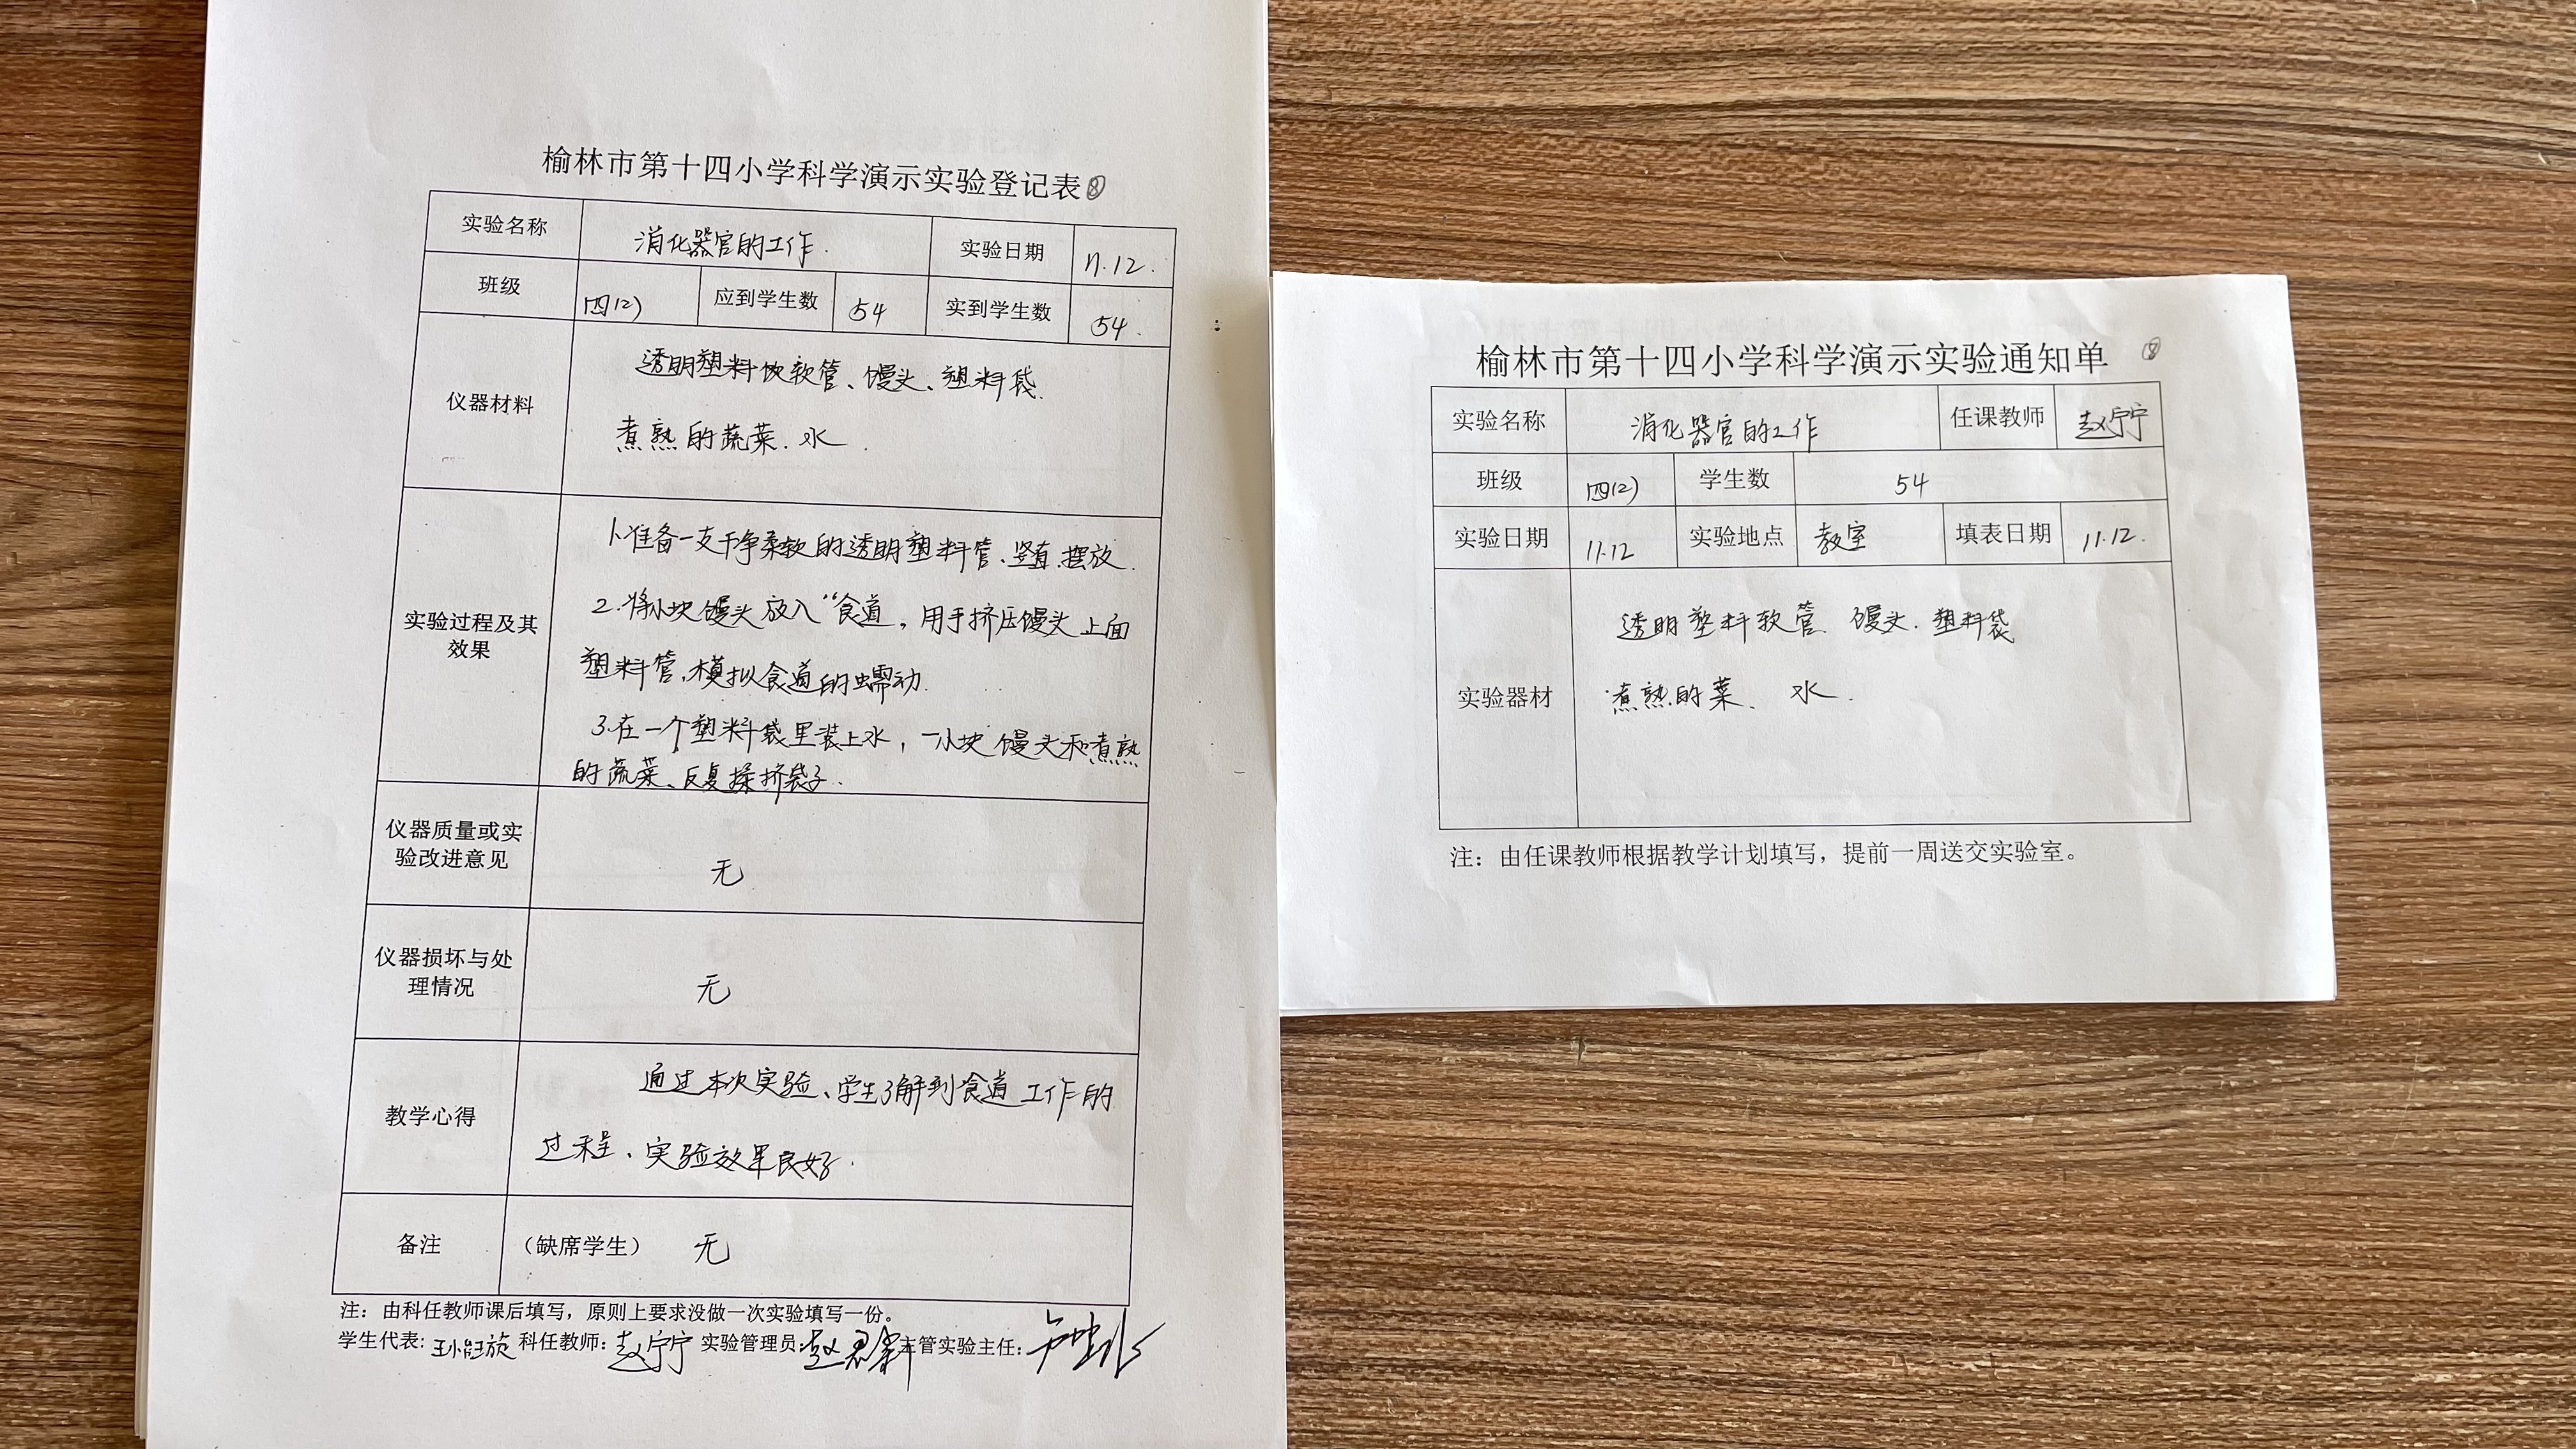 榆林市第十四小学科学演示实验登记表⑧
实验名称 消化器官的工作. 实验日期 11.12.
班级 四(2) 应到学生数 54 实到学生数 54.
仪器材料
透明塑料 软管、馒头、塑料袋.
煮熟的蔬菜.水.
实验过程及其
效果
1.准备一支干净柔软的透明塑料管、竖直.摆放.
2.将小块馒头放入“食道,用手挤压馒头上面
塑料管,模拟食道的蠕动.
3.在一个塑料袋里装上水,一小块馒头和煮熟
的蔬菜、反复揉挤袋子.
仪器质量或实
验改进意见
无
仪器损坏与处
理情况
无
教学心得
通过本次实验、学生了解到食道工作的
过程、实验效果良好.
备注 (缺席学生) 无
注：由科任教师课后填写，原则上要求没做一次实验填写一份。
学生代表: 科任教师: 赵宁宁 实验管理员: 主管实验主任:
榆林市第十四小学科学演示实验通知单 ⑧
实验名称 消化器官的工作 任课教师 赵宁宁
班级 四(2) 学生数 54
实验日期 11.12 实验地点 教室 填表日期 11.12.
实验器材
透明塑料软管 馒头.塑料袋
煮熟的菜、 水.
注：由任课教师根据教学计划填写，提前一周送交实验室。